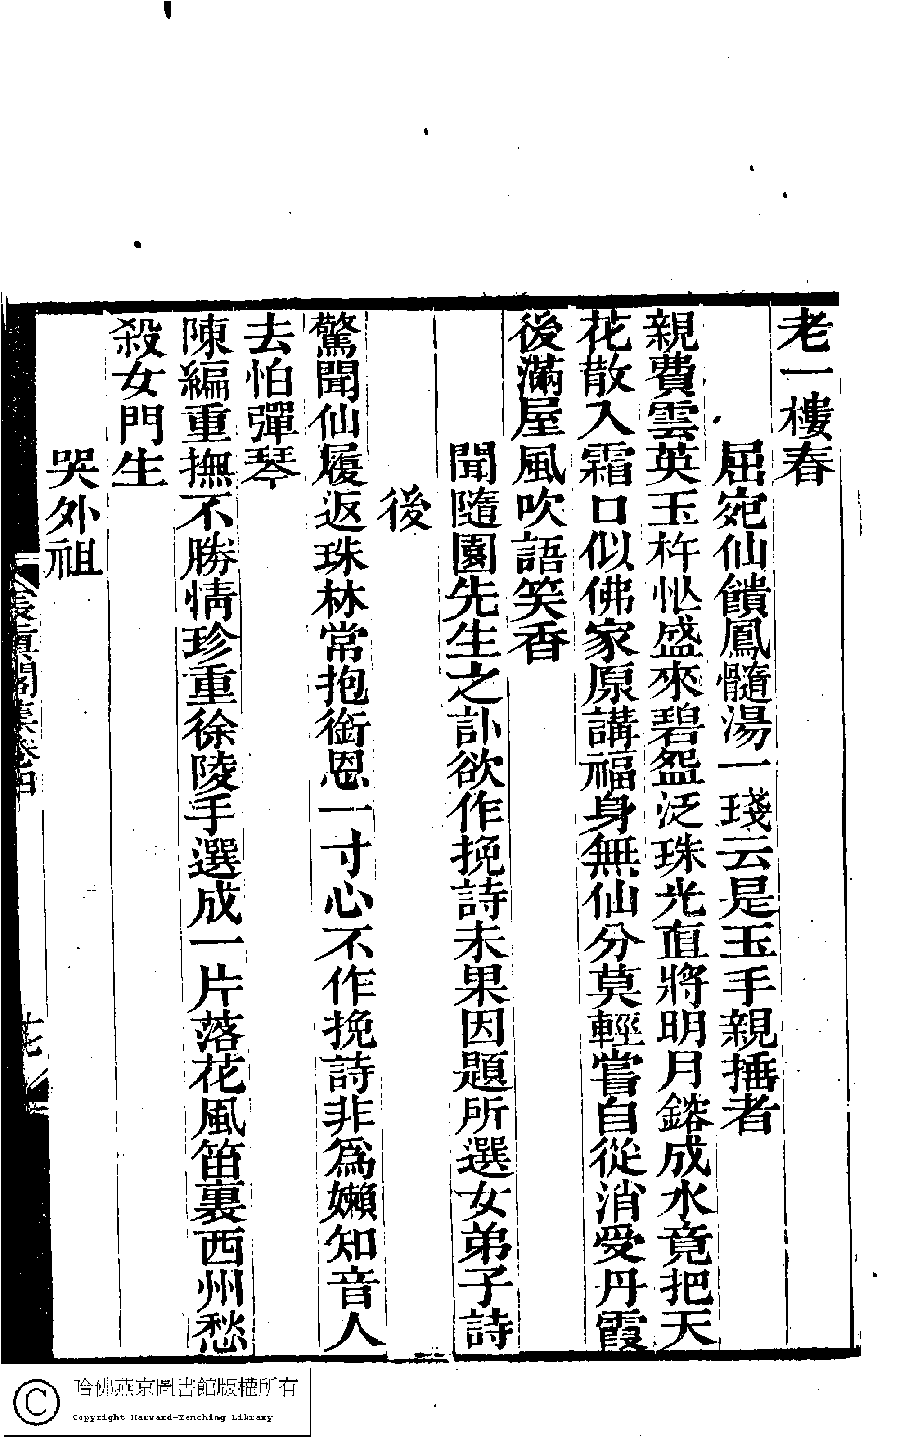 老一樓春
屈宛仙饋鳳髓湯一琖云是玉手親捶者
親費雲英玉杵忙盛來碧盌泛珠光直將明月鎔成水竟把天
花散入霜口似佛家原講福身無仙分莫輕嘗自從消受丹霞
後滿屋風吹語笑香
聞隨園先生之訃欲作挽詩未果因題所選女弟子詩
後
驚聞仙履返珠林常抱銜恩一寸心不作挽詩非爲嬾知音人
去怕彈琴
陳編重撫不勝情珍重徐陵手選成一片落花風笛裏西州愁
殺女門生
哭外祖
長真閣集卷四
哈佛燕京圖書館版權所有
Copyright Harvard-Yenching Library